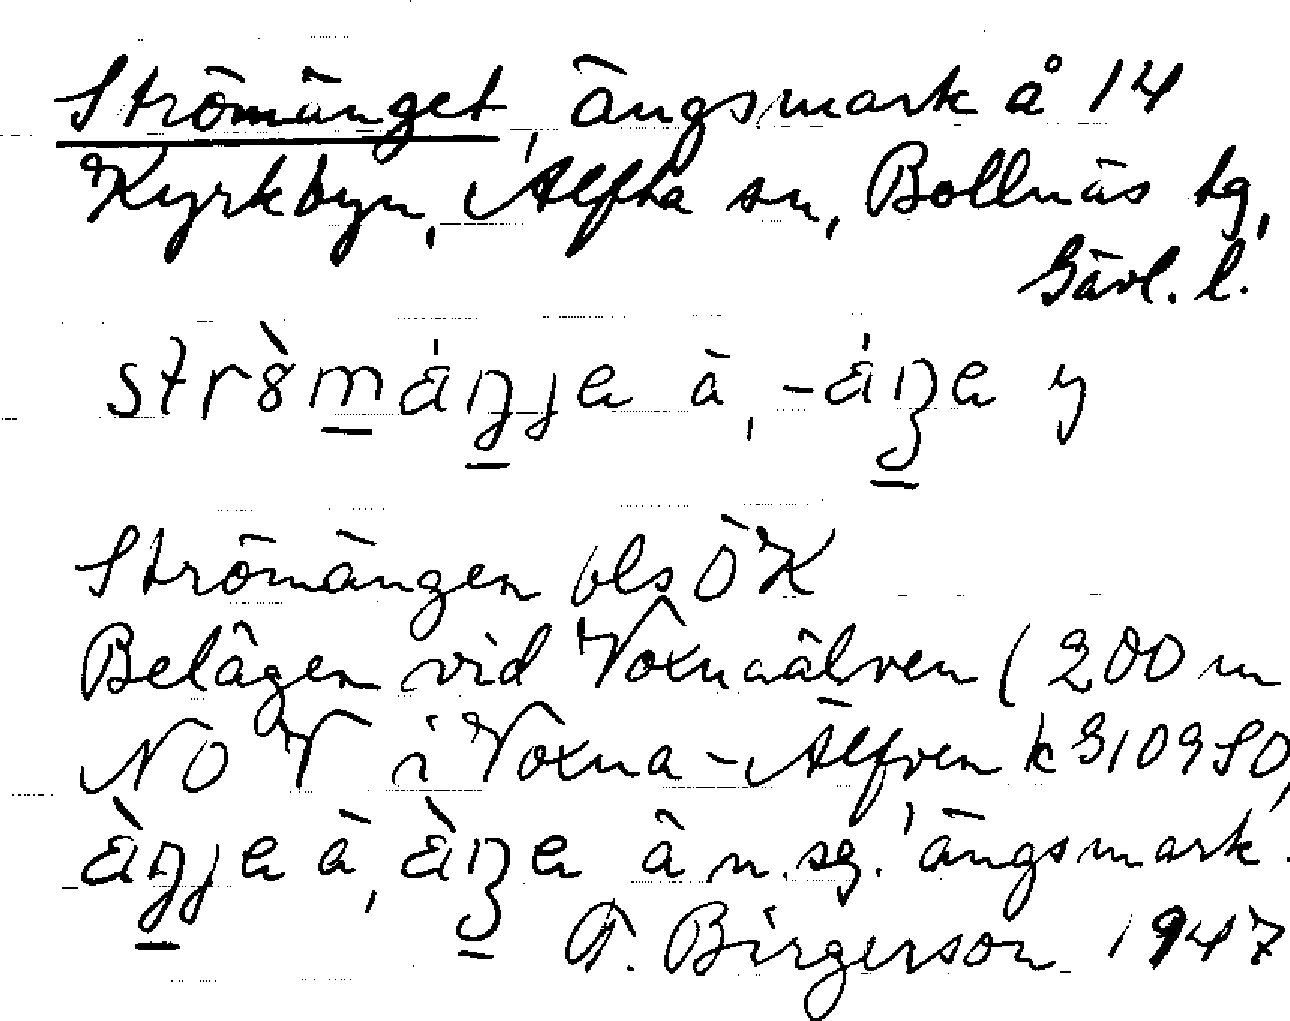 Strömänget, ängsmark å 14
Kyrkbyn, Alfta sn, Bollnäs tg,
Gävl. l.
strö̀máŋje ä, -áŋe y
Strömängen bls ÖK
Belägen vid Voxnaälven (200 m
NO V i Voxna-Älfven k 310950,
ä̀ŋje ä, ä̀ŋe ä n. sg. 'ängsmark.
T. Birgerson 1947